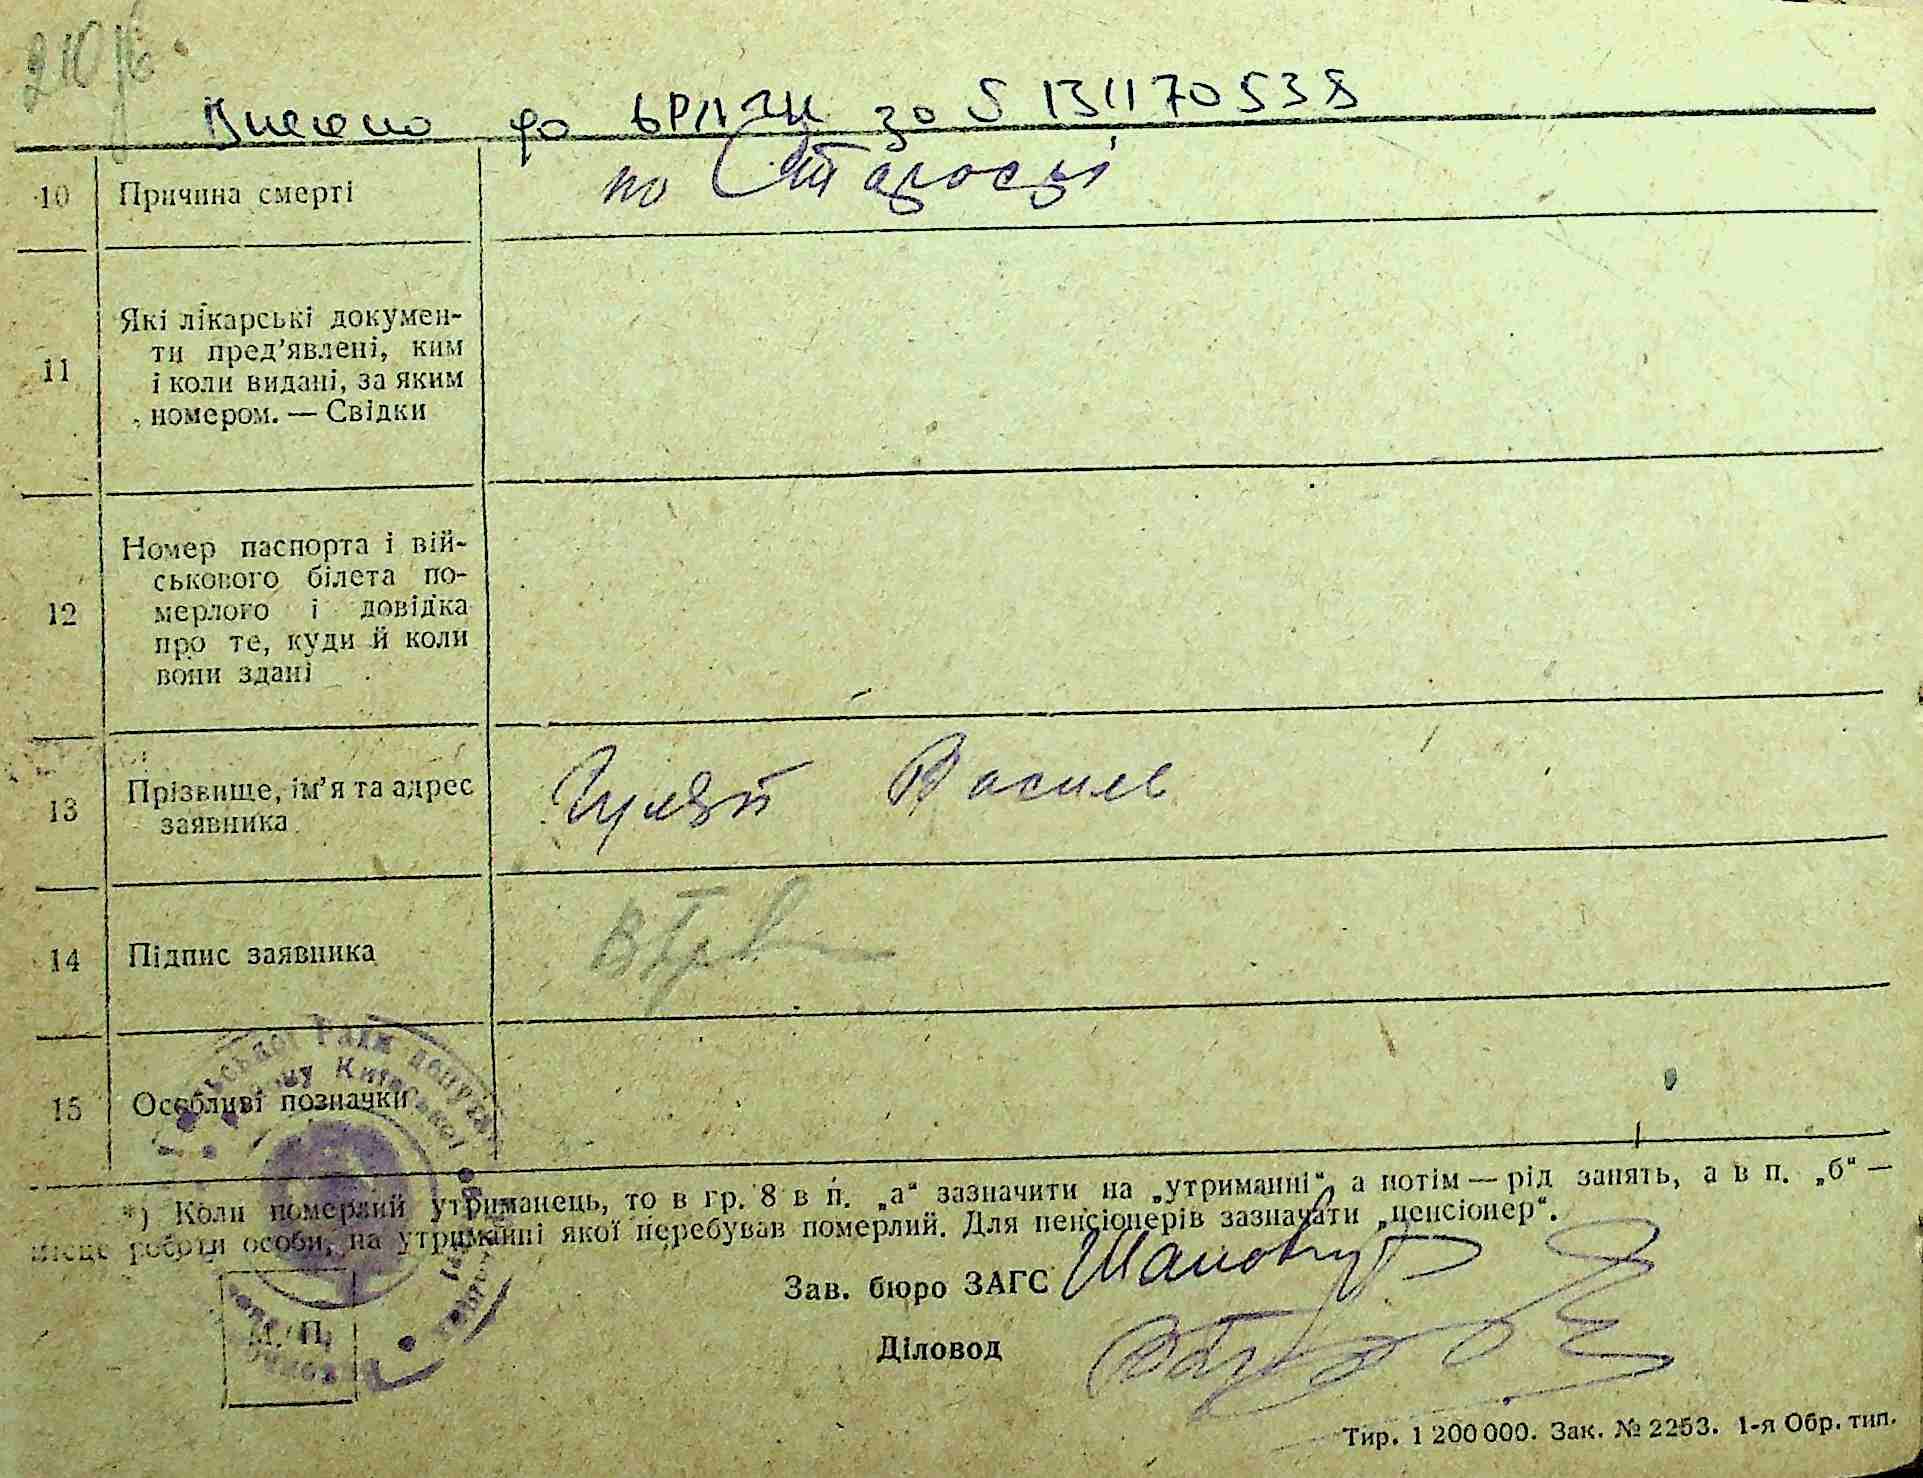 Внесено до ДРАЦС за № 131170538
10 Причина смерті по Старості
11 Які лікарські докумен-
ти пред'явлені, ким
і коли видані, за яким
номером. — Свідки
12 Номер паспорта і вій-
ськового білета по-
мерлого і довідка
про те, куди й коли
вони здані
13 Прізвище, ім'я та адрес Гуляй Василь
заявника
14 Підпис заявника
15 Особливі позначки
*) Коли померлий утриманець, то в гр. 8 в п. „а“ зазначити на „утриманні“, а потім — рід занять, а в п. „б“ —
місце роботи особи, на утриманні якої перебував померлий. Для пенсіонерів зазначати „пенсіонер“.
Зав. бюро ЗАГС
Діловод
М. П.
Тир. 1 200 000. Зак. № 2253. 1-я Обр. тип.